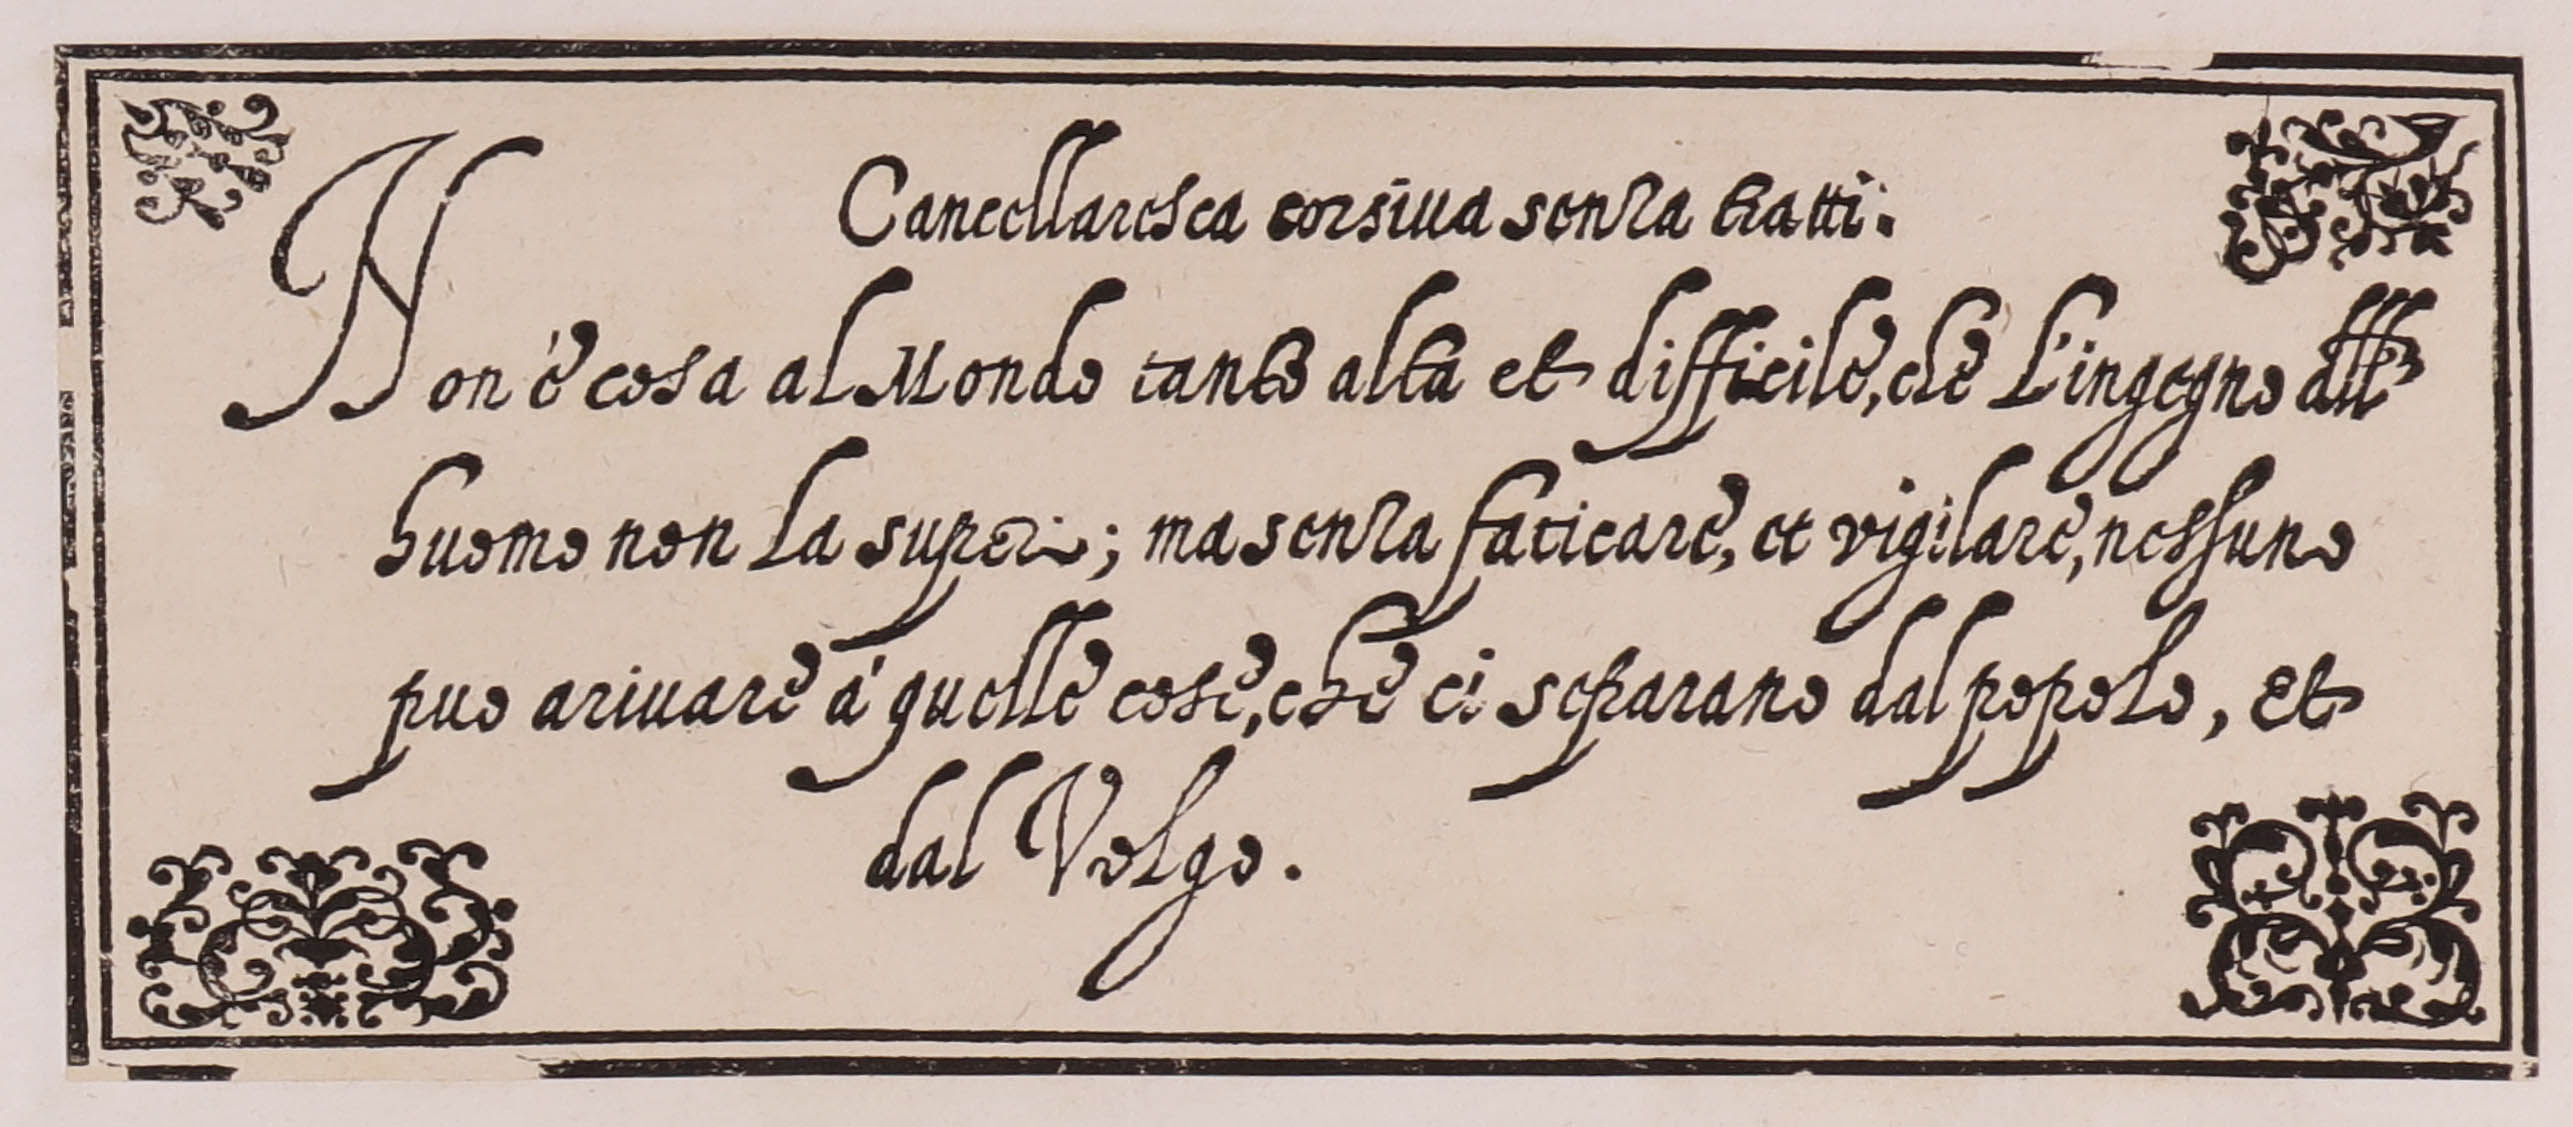 Cancellaresca corsiua senza tratti.
Non è cosa al Mondo tanto alta et difficile, che l'ingegno dell'
huomo non la superi; ma senza faticare, et vigilare, nessuno
puo ariuare á quelle cose, che ci separano dal popolo, et
dal Volgo.